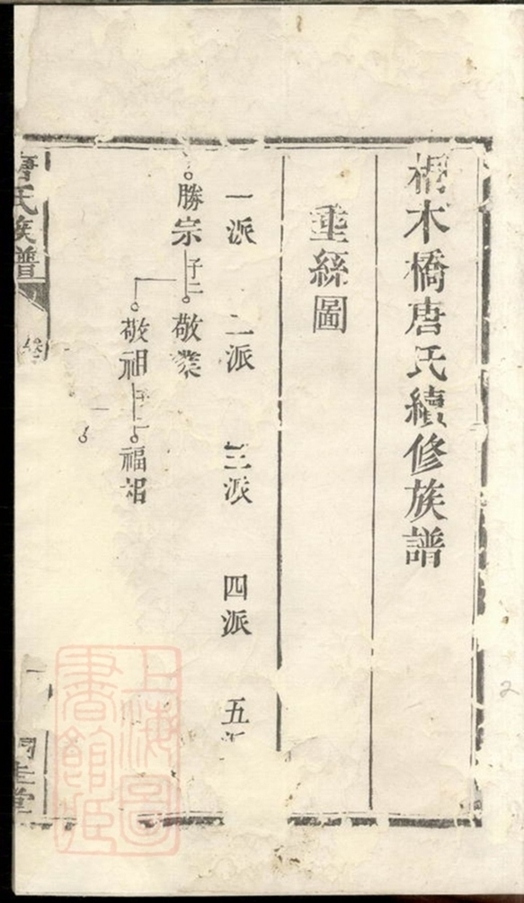 木橋唐氏續修族譜
垂絲圖
一派 二派 三派 四派 五派
勝宗 子二 敬業
敬祖 子二 福
唐氏族譜 卷 一 堂
上海圖
書館藏